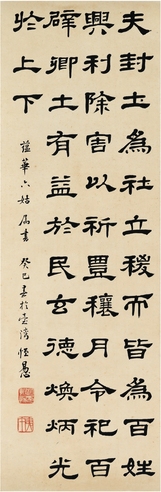 夫封土為社立稷而皆為百姓
興利除害以祈豐穰月令祀百
辟卿士有益於民玄德煥炳光
於上下
蘊華六姑属书 癸巳 恒愚